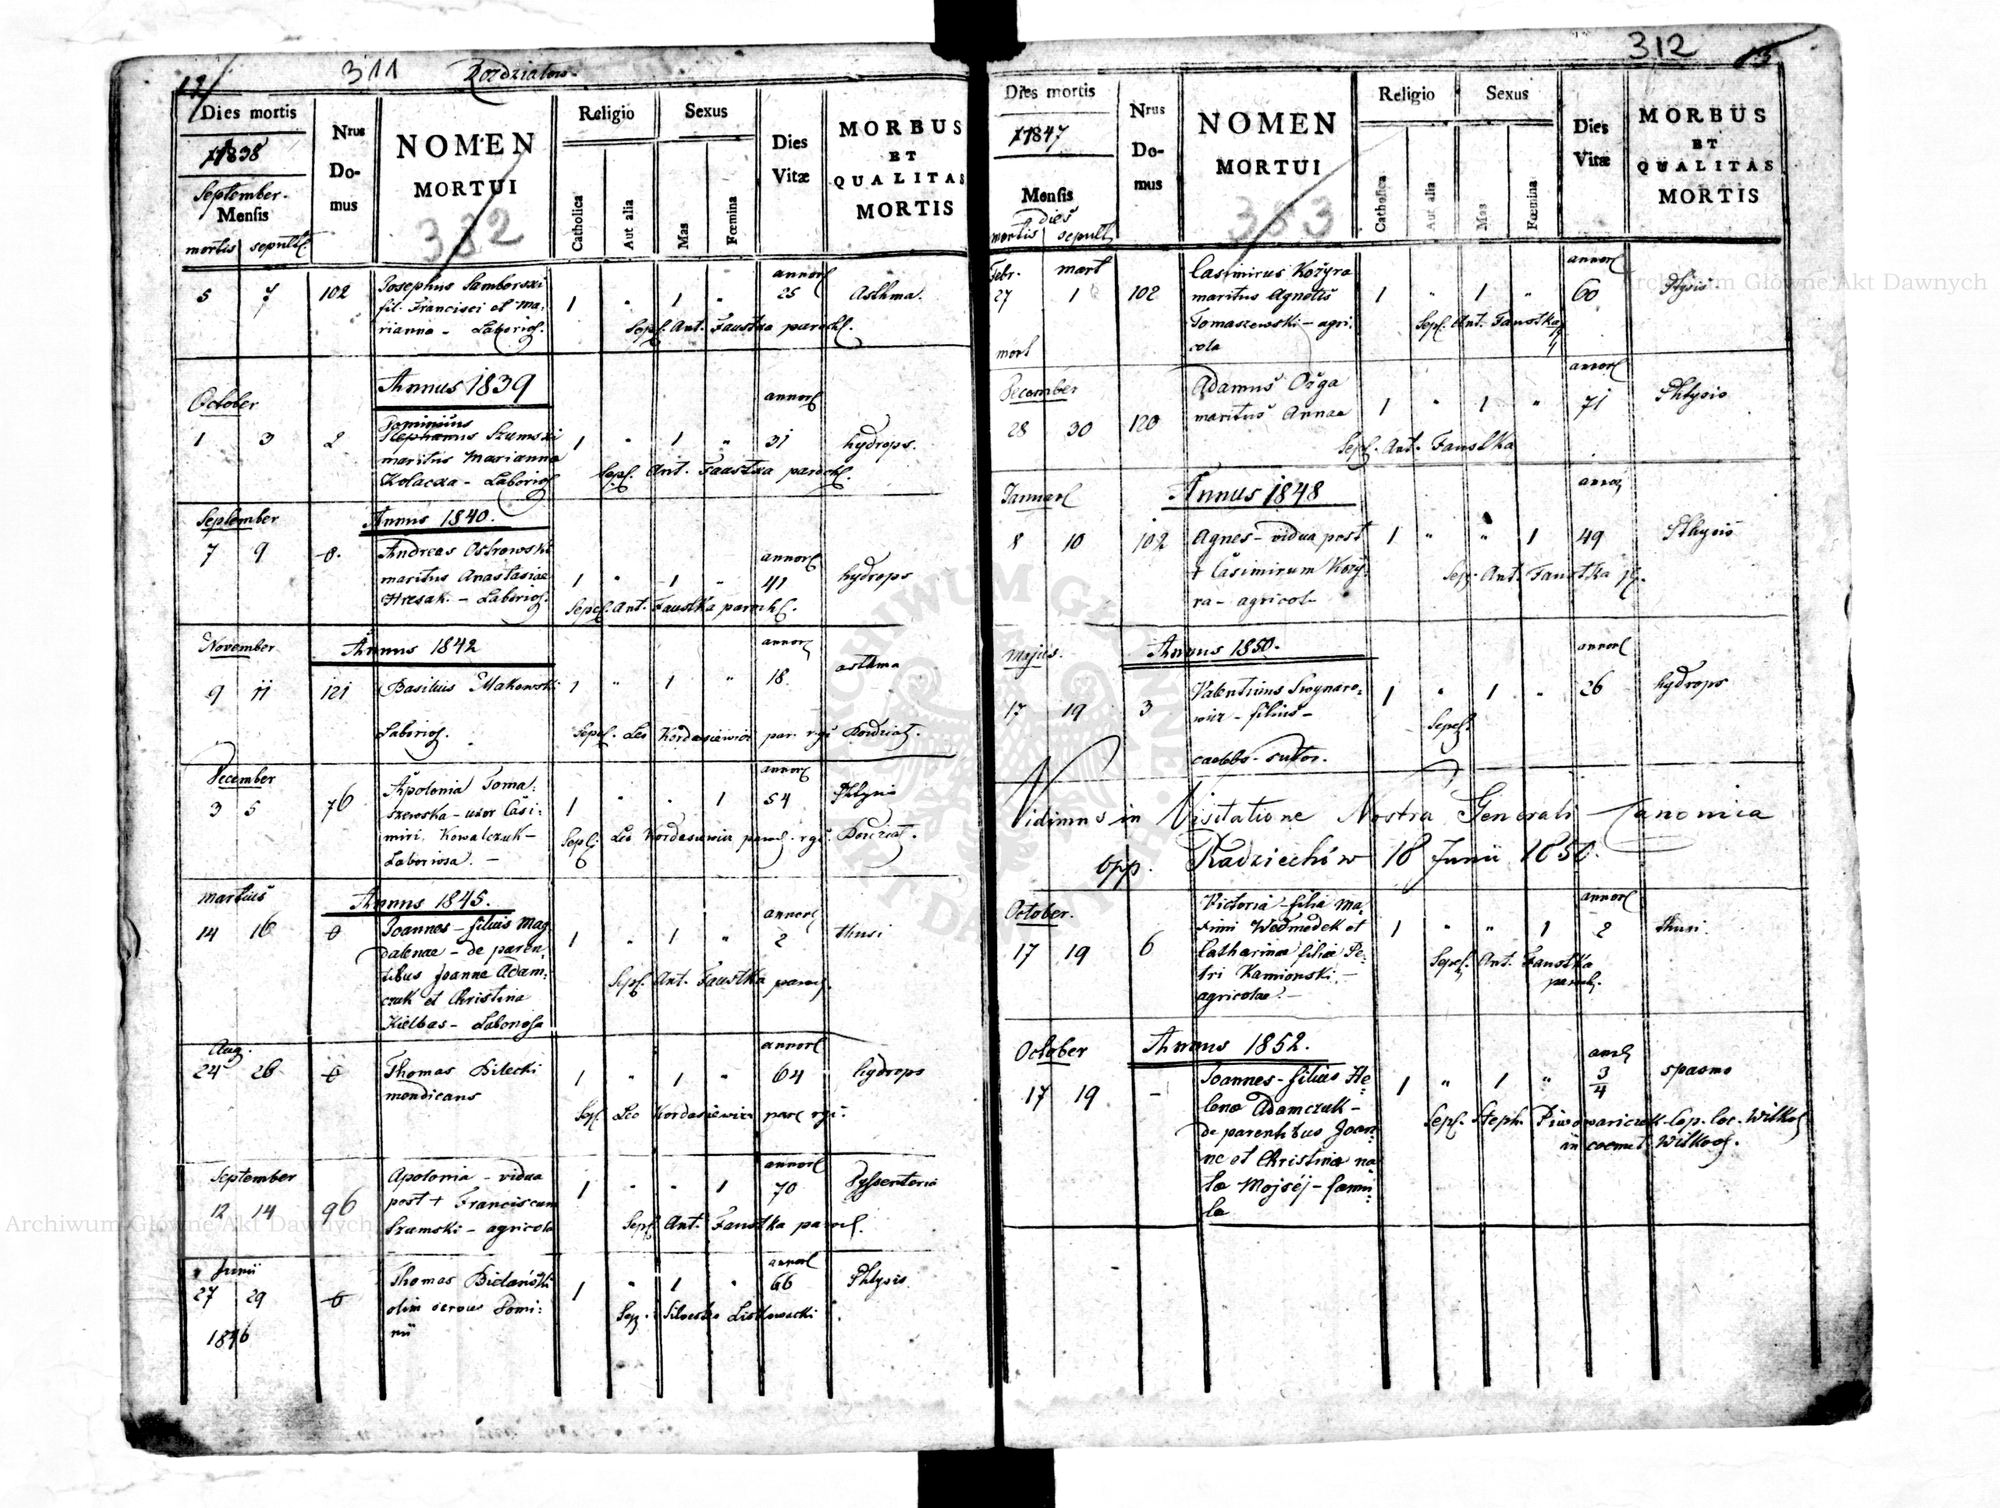 311
Dies mortis
1838
September.
Mensis
mortis sepult.
Nrus
Do-
mus
NOMEN
MORTUI
332
Religio
Catholica
Aut alia
Sexus
Mas
Fœmina
Dies
Vitæ
MORBUS
ET
QUALITAS
MORTIS
5 7 102 Josephus Samborski 1 " 1 " annor. 25 Asthma.
fil. Francisci et Ma-
rianna - Laborios.
Sep. Ant. Faustka paroch.
Annus 1839
October
Dominicus
1 3 2 Stephanus Szumski 1 " 1 " annor. 31 hydrops.
maritus Marianna
Kolacka - Laborios
Sep. Ant. Faustka paroch.
September
Annus 1840.
7 9 Andreas Ostrowski
maritus Anastasiae 1 " 1 " annor. 41 hydrops
Hresak. - Laborios.
Sepel. Ant. Faustka paroch.
November
Annus 1842
9 11 121 Basilius Makowski 1 " 1 " annor. 18 asthma
Laborios.
Sepel. Leo Kordasiewicz par. rgr
December
3 5 76 Apolonia Toma- 1 " " 1 annor. 54 Phtysis
szewska - uxor Casi-
miri Kowalczuk -
Laboriosa. -
Sepel. Leo Kordasiewicz
Martius
Annus 1845.
14 16 Joannes - filius Mag 1 " 1 " annor. 2 thusi
dalenae - de paren-
tibus Joanne Adam-
czuk et Christina
Kielbas - Laboriosa
Sep. Ant. Faustka paroch.
Aug.
24 26 Thomas Bilecki 1 " 1 " annor. 64 hydrops
mendicans
Sep. Leo Kordasiewicz
September
12 14 96 Apolonia - vidua 1 " " 1 annor. 70 Dyssenteria
post + Franciscum
Szumski - agricola
Sep. Ant. Faustka paroch.
Junii
27 29 Thomas Bielański 1 " 1 " annor. 66 Phtysis
olim servus Domi-
nii
Sep. Silvester
1846
312
Dies mortis
1847
Mensis
dies
mortis sepult
Nrus
Do-
mus
NOMEN
MORTUI
333
Religio
Catholica
Aut alia
Sexus
Mas
Fœmina
Dies
Vitæ
MORBUS
ET
QUALITAS
MORTIS
Febr. mart
27 1 102 Casimirus Kożyra 1 " 1 " annor. 60 Phtysis
maritus Agnetis
Tomaszewski - agri-
cola
Sep. Ant. Faustka
December
28 30 120 Adamus Ożga 1 " 1 " annor. 71 Phtysis
maritus Annae
Sep. Ant. Faustka
Januar
Annus 1848
8 10 102 Agnes - vidua post 1 " " 1 annor. 49 Phtysis
+ Casimirum Koży-
ra - agricol.
Sep. Ant. Faustka
Majus.
Annus 1850.
17 19 3 Valentinus 1 " 1 " annor. 26 hydrops
filius -
caelebs - sutor.
Sepel.
Vidimus in Visitatione Nostra Generali Canonica
Opp. Radziechów 18 Junii 1850.
October.
17 19 6 Victoria - filia Ma- 1 " " 1 annor. 2 thusi.
ximi Wedmedek et
Catharinae filiae Pe-
tri Kamionski. -
agricolae. -
Sepel. Ant. Faustka
paroch.
October
Annus 1852.
17 19 - Joannes - filius He- 1 " 1 " 3/4 spasmo
lena Adamczuk -
de parentibus Joan-
ne et Christina na-
ta Mojsej - famu-
la
Sepel. Steph. Piwowarczuk Cop. loc. Wilkos
in coemet. Wilkos.
Archiwum Główne Akt Dawnych
Archiwum Główne Akt Dawnych
ARCHIWUM GŁÓWNE AKT DAWNYCH